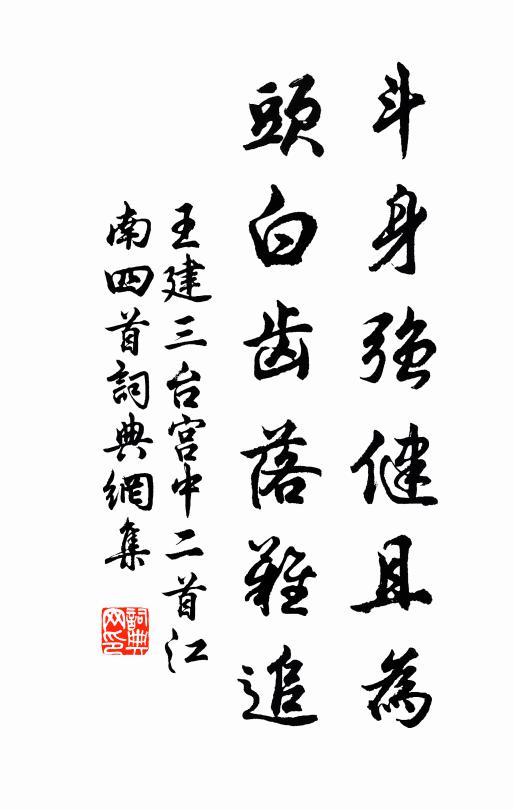 斗身強健且為
頭白齿落難追
王建三台宫中二首江
南四首詞典網集
詞典
网印